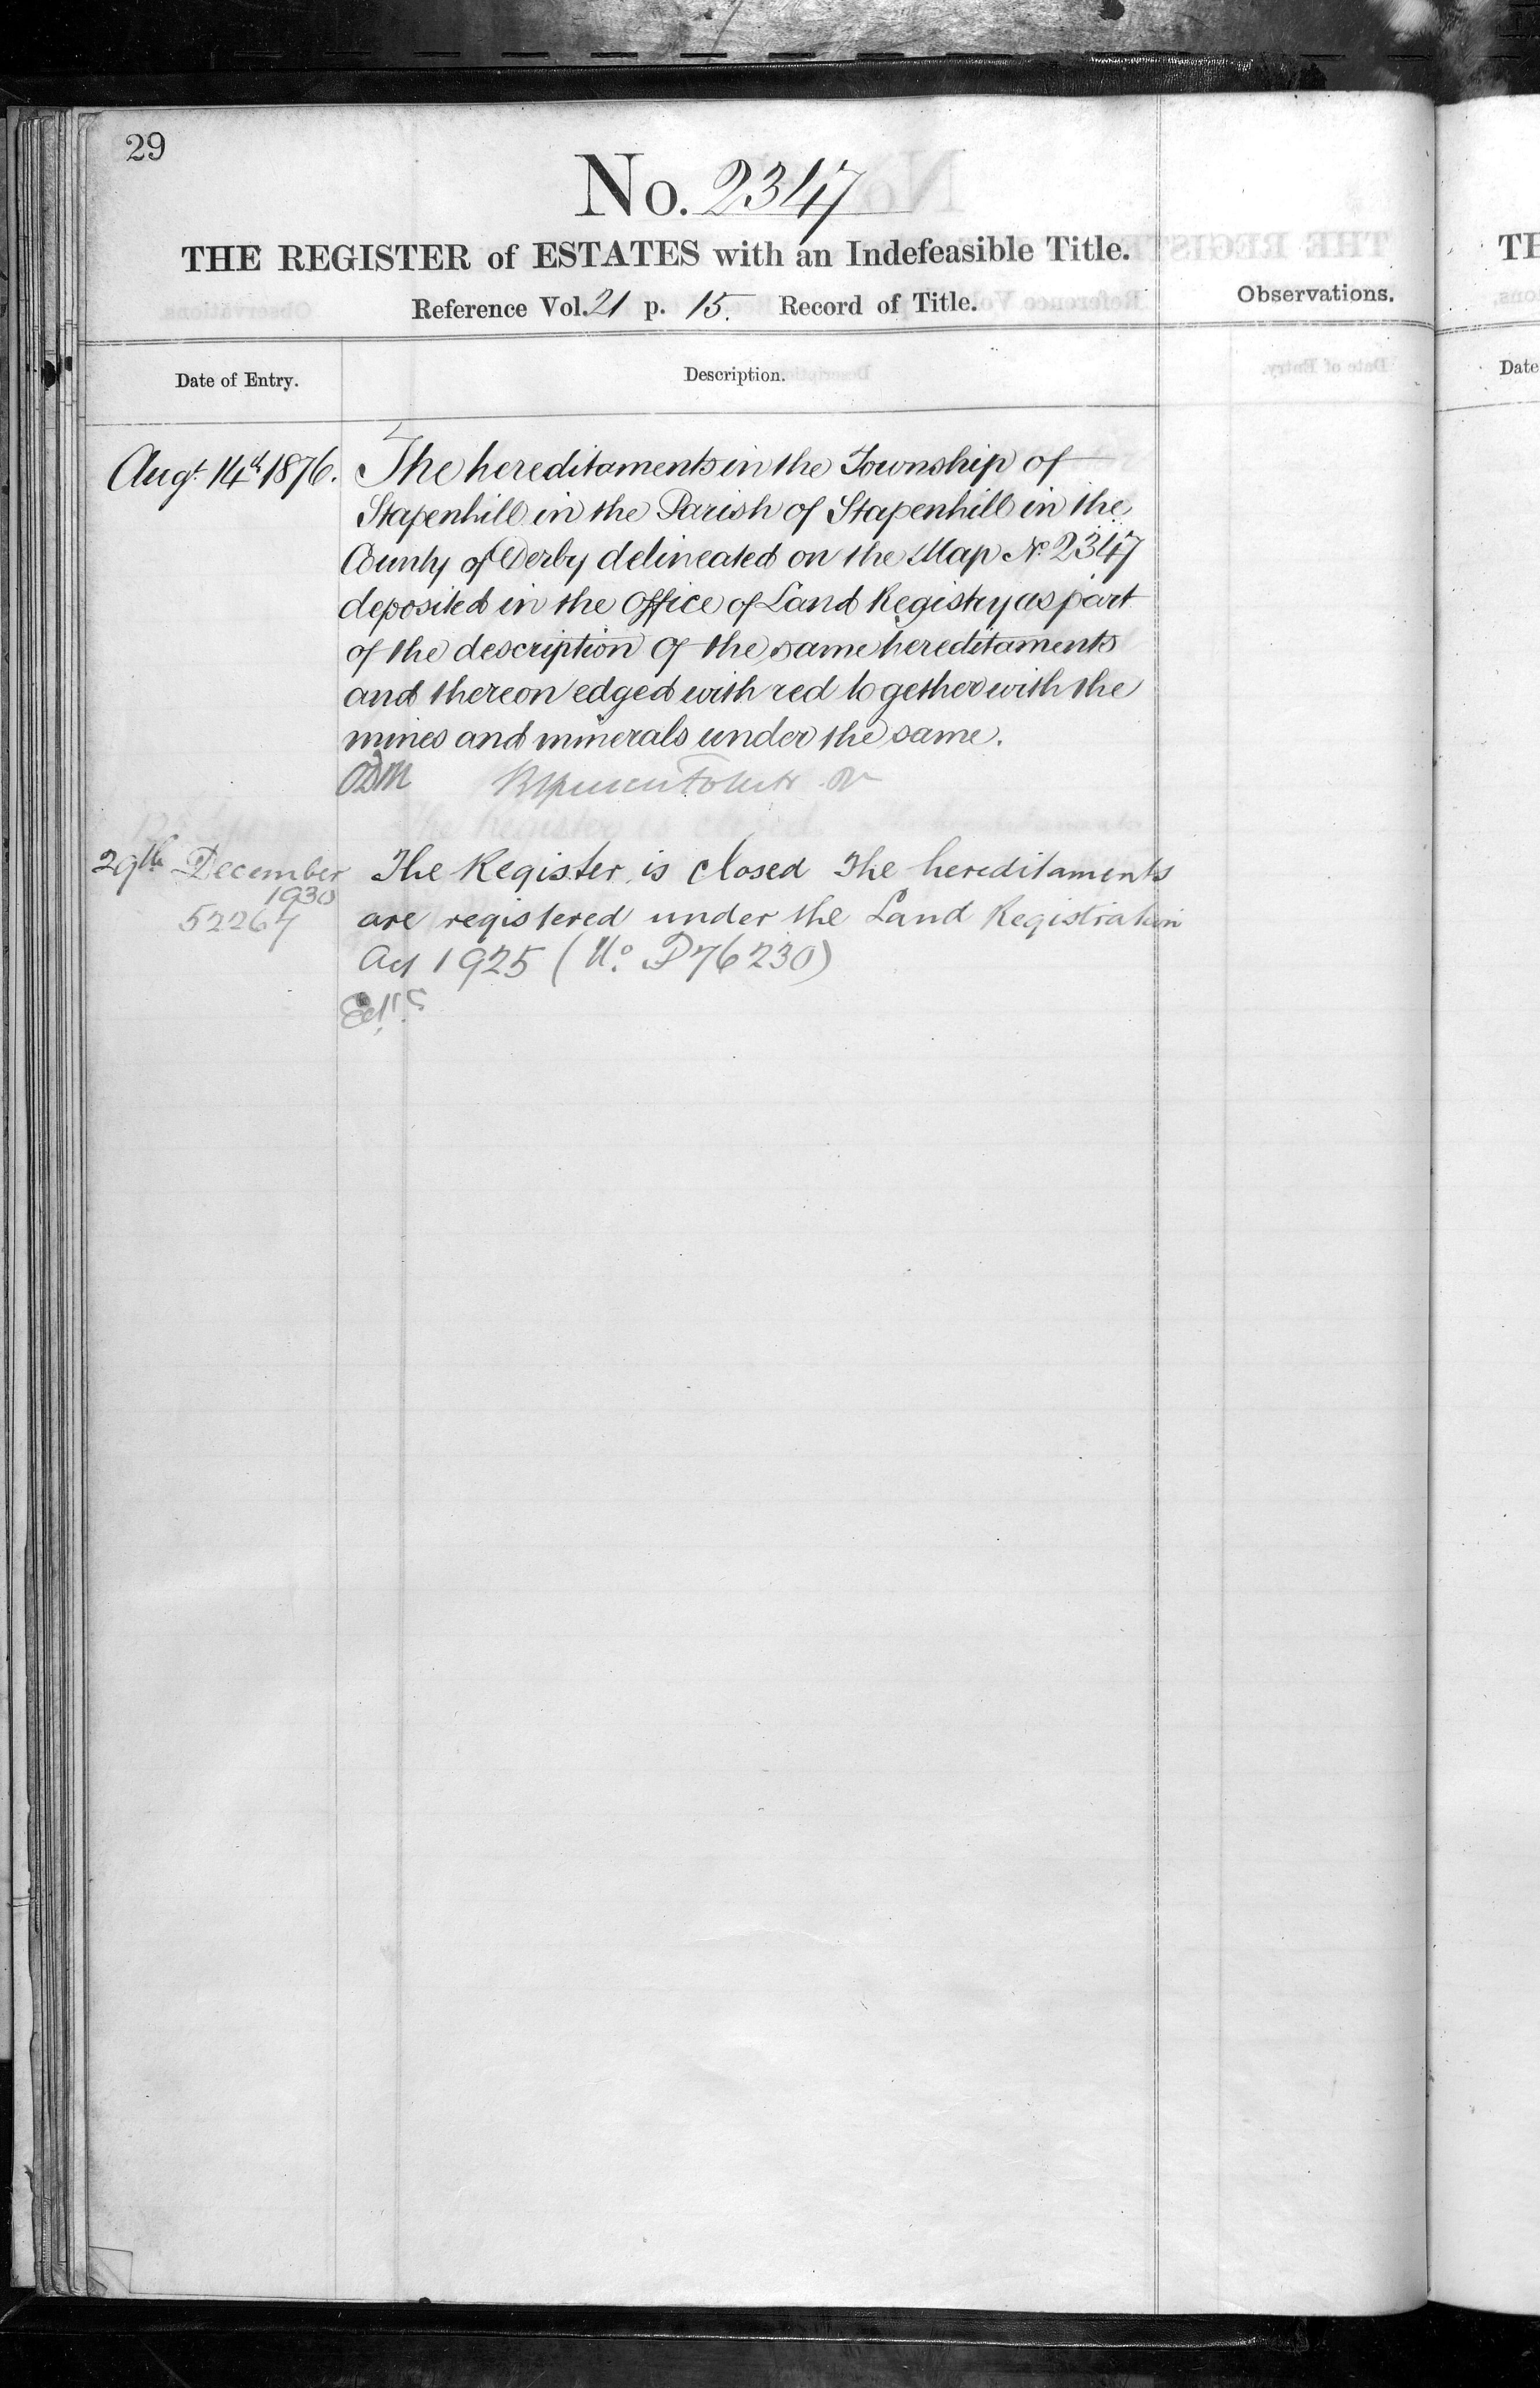 29
No. 2347
THE REGISTER of ESTATES with an Indefeasible Title.
Reference Vol. 21 p. 15. Record of Title.
Observations.
Date of Entry.
Description.
Augt. 14th 1876.
The hereditaments in the Township of
Stapenhill in the Parish of Stapenhill in the
County of Derby delineated on the Map No. 2347
deposited in the Office of Land Registry as part
of the description of the same hereditaments
and thereon edged with red together with the
mines and minerals under the same.
29th December
1930
52267
The Register is closed The hereditaments
are registered under the Land Registration
Act 1925 (No. P76230)
TH
Date